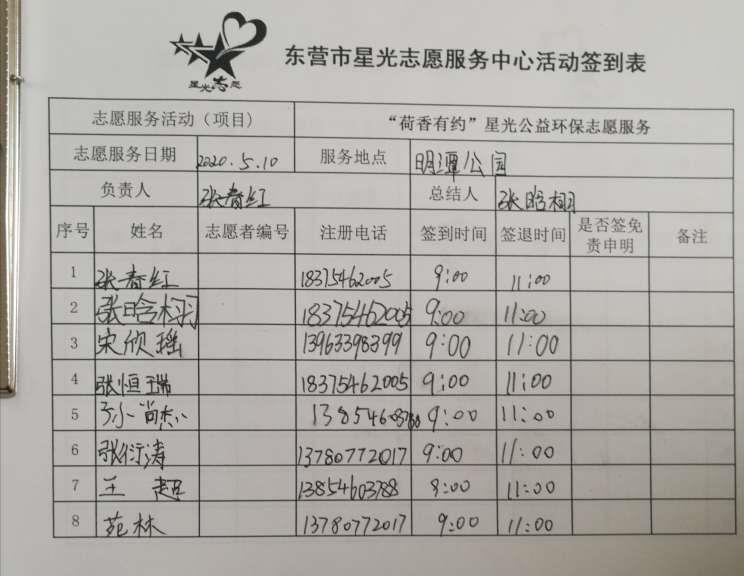 星光志愿
东营市星光志愿服务中心活动签到表
志愿服务活动(项目) “荷香有约”星光公益环保志愿服务
志愿服务日期 2020.5.10 服务地点 明潭公园
负责人 张春红 总结人 张晗栩
序号 姓名 志愿者编号 注册电话 签到时间 签退时间 是否签免责申明 备注
1 张春红 18375462005 9:00 11:00
2 张晗栩 18375462005 9:00 11:00
3 宋欣瑶 13963398399 9:00 11:00
4 张恒瑞 18375462005 9:00 11:00
5 9:00 11:00
6 张衍涛 13780772017 9:00 11:00
7 王超 13854603788 11:00
8 苑林 13780772017 9:00 11:00